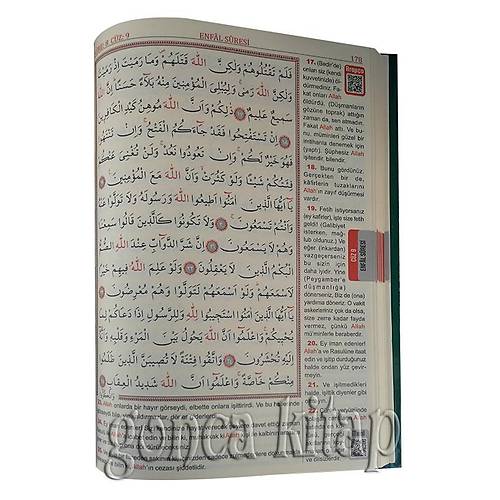 CÜZ: 9
ENFÂL SÛRESİ
178
فَلَمْ تَقْتُلُوهُمْ وَلٰكِنَّ اللّٰهَ قَتَلَهُمْ وَمَا رَمَيْتَ اِذْ رَمَيْتَ
وَلٰكِنَّ اللّٰهَ رَمٰى وَلِيُبْلِيَ الْمُؤْمِنٖينَ مِنْهُ بَلَاءً حَسَنًا اِنَّ اللّٰهَ
سَمٖيعٌ عَلٖيمٌ ذٰلِكُمْ وَاَنَّ اللّٰهَ مُوهِنُ كَيْدِ الْكَافِرٖينَ
اِنْ تَسْتَفْتِحُوا فَقَدْ جَاءَكُمُ الْفَتْحُ وَاِنْ تَنْتَهُوا
فَهُوَ خَيْرٌ لَكُمْ وَاِنْ تَعُودُوا نَعُدْ وَلَنْ تُغْنِيَ عَنْكُمْ
فِئَتُكُمْ شَيْئًا وَلَوْ كَثُرَتْ وَاَنَّ اللّٰهَ مَعَ الْمُؤْمِنٖينَ
يَا اَيُّهَا الَّذٖينَ اٰمَنُوا اَطٖيعُوا اللّٰهَ وَرَسُولَهُ وَلَا تَوَلَّوْا عَنْهُ
وَاَنْتُمْ تَسْمَعُونَ وَلَا تَكُونُوا كَالَّذٖينَ قَالُوا سَمِعْنَا
وَهُمْ لَا يَسْمَعُونَ اِنَّ شَرَّ الدَّوَابِّ عِنْدَ اللّٰهِ الصُّمُّ
الْبُكْمُ الَّذٖينَ لَا يَعْقِلُونَ وَلَوْ عَلِمَ اللّٰهُ فٖيهِمْ خَيْرًا
لَاَسْمَعَهُمْ وَلَوْ اَسْمَعَهُمْ لَتَوَلَّوْا وَهُمْ مُعْرِضُونَ
يَا اَيُّهَا الَّذٖينَ اٰمَنُوا اسْتَجٖيبُوا لِلّٰهِ وَلِلرَّسُولِ اِذَا دَعَاكُمْ لِمَا
يُحْيٖيكُمْ وَاعْلَمُوا اَنَّ اللّٰهَ يَحُولُ بَيْنَ الْمَرْءِ وَقَلْبِهٖ وَاَنَّهُ
اِلَيْهِ تُحْشَرُونَ وَاتَّقُوا فِتْنَةً لَا تُصٖيبَنَّ الَّذٖينَ ظَلَمُوا
مِنْكُمْ خَاصَّةً وَاعْلَمُوا اَنَّ اللّٰهَ شَدٖيدُ الْعِقَابِ
17. (Bedir'de)
onları siz (kendi
kuvvetinizle) öl-
dürmediniz. Fa-
kat onları Allah
öldürdü. (Düşmanların
gözüne toprak) attığın
zaman da, sen atmadın.
Fakat Allah attı. Ve bu-
nu, müminleri güzel bir
imtihanla denemek için
(yaptı). Şüphesiz Allah
işitendir, bilendir.
18. Bunu gördünüz.
Gerçekten bir de,
kâfirlerin tuzaklarını
Allah'ın zayıf düşürmesi
vardır.
19. Fetih istiyorsanız
(ey kafirler), işte size
fetih geldi! (Galibiyet
isterken, mağ-
lub oldunuz.) Ve
eğer (inkardan)
vazgeçerseniz
bu sizin için
daha iyidir. Yine
(Peygamber'e
düşmanlığa)
dönerseniz, Biz de (ona)
yardıma döneriz. O vakit
askerleriniz çok da olsa,
size zerre kadar fayda
vermez, çünkü Allah
mü'minlerle beraberdir.
20. Ey iman edenler!
Allah'a ve Rasulüne itaat
edin ve işitip durduğunuz
halde ondan yüz çevir-
meyin.
21. Ve işitmedikleri
halde, işittik diyenler gibi
CÜZ 9
ENFÂL SÛRESİ
Allah onlarda bir hayır görseydi, elbette onlara işittirirdi. Ve bu
Allah'ın cezası şiddetlidir.
gonca kitap